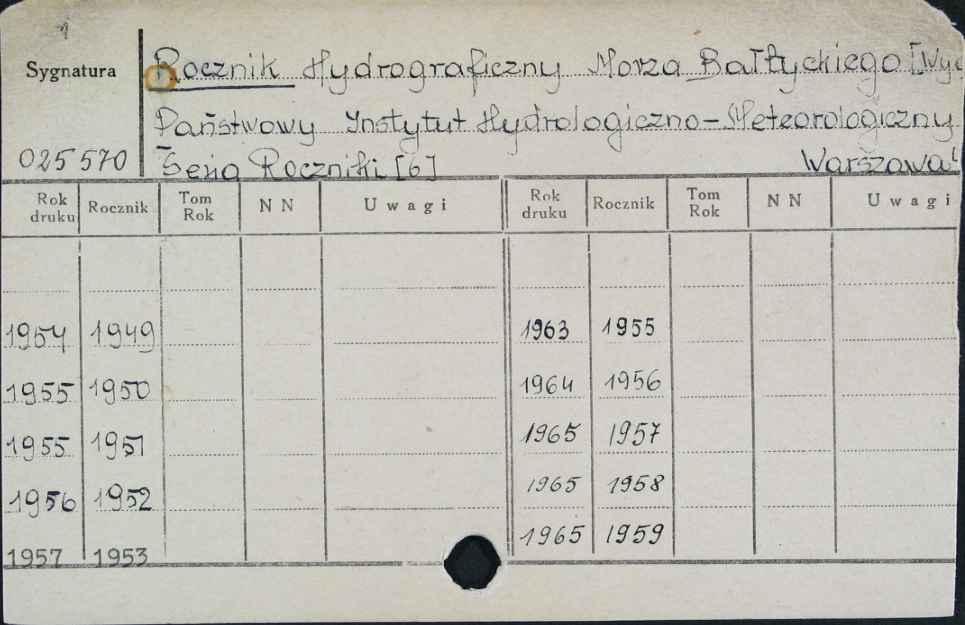 Sygnatura
025570
Rocznik Hydrograficzny Morza Bałtyckiego [Wyd
Państwowy Instytut Hydrologiczno-Meteorologiczny
Seria Roczniki [6] Warszawa
Rok druku Rocznik Tom Rok N N Uwagi Rok druku Rocznik Tom Rok N N Uwagi
1954 1949 1963 1955
1955 1950 1964 1956
1955 1951 1965 1957
1956 1952 1965 1958
1957 1953 1965 1959